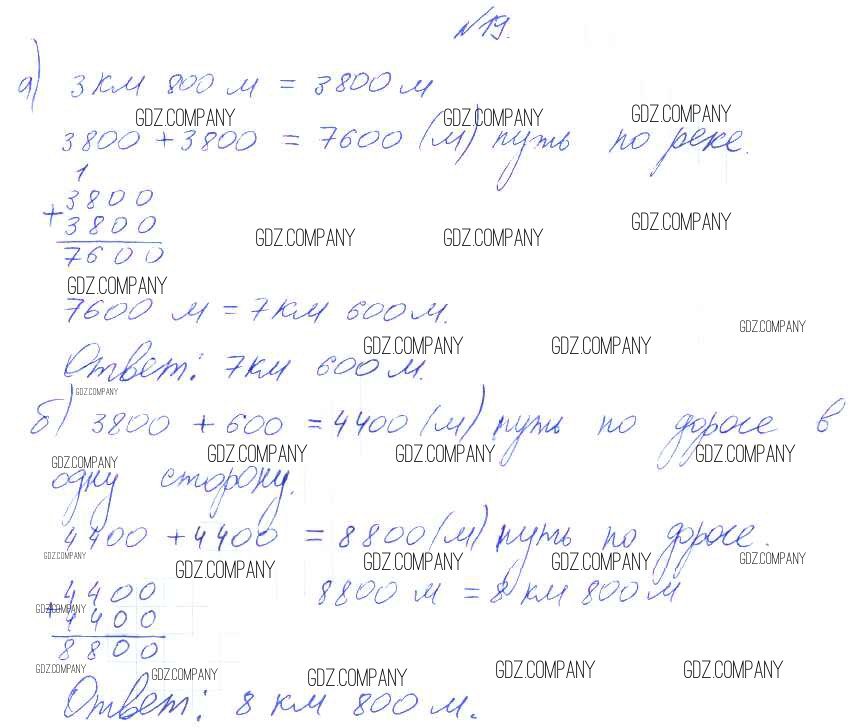 №19.
а) 3 км 800 м = 3800 м
GDZ.COMPANY GDZ.COMPANY GDZ.COMPANY
3800 + 3800 = 7600 (м) путь по реке.
1
3800
+
3800
GDZ.COMPANY GDZ.COMPANY GDZ.COMPANY
7600
GDZ.COMPANY
7600 м = 7 км 600 м.
GDZ.COMPANY
GDZ.COMPANY GDZ.COMPANY
Ответ: 7 км 600 м.
GDZ.COMPANY
б) 3800 + 600 = 4400 (м) путь по дороге в
GDZ.COMPANY GDZ.COMPANY GDZ.COMPANY GDZ.COMPANY
одну сторону.
4400 + 4400 = 8800 (м) путь по дороге.
GDZ.COMPANY GDZ.COMPANY GDZ.COMPANY GDZ.COMPANY GDZ.COMPANY
4400 8800 м = 8 км 800 м
GDZ.COMPANY
+ 4400
8800
GDZ.COMPANY GDZ.COMPANY GDZ.COMPANY GDZ.COMPANY GDZ.COMPANY
Ответ: 8 км 800 м.